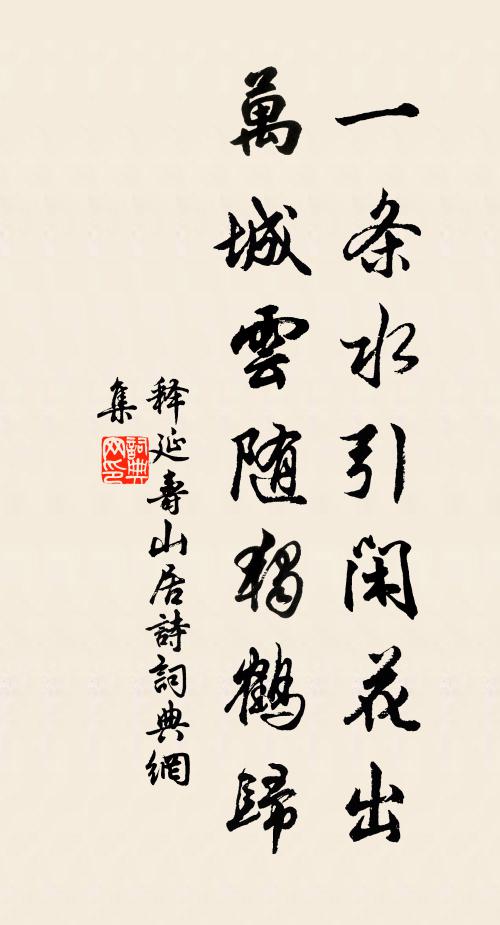 一条水引閑花出
萬城雲随獨鶴歸
释延壽山居詩詞典網
集
詞典網印